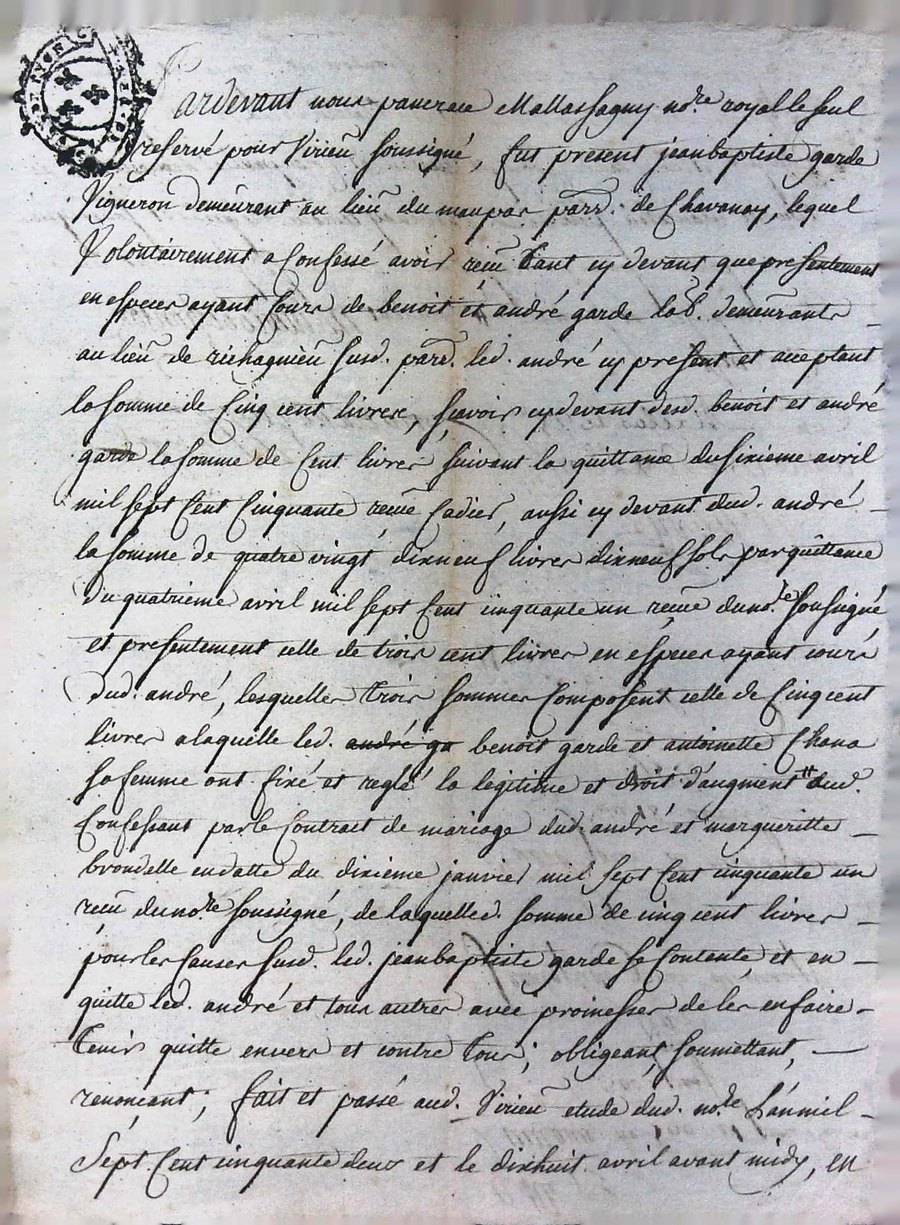 Pardevant nous pancrace Mallassagny no.re royal le seul
reservé pour Virieu soussigné, fut present jean baptiste garde
Vigneron demeurant au lieu du maupas parr. de Chavanay, lequel
Volontairement a Confessé avoir recu tant cy devant que presentement
en especes ayant Cours de benoit et andré garde lab. demeurants
au lieu de richagnieu susd. parr. led. andré cy present et acceptant
la somme de Cinq cent livres, scavoir cy devant desd. benoit et andré
garde la somme de Cent livres suivant la quittance du sixieme avril
mil sept Cent Cinquante recue Cadier, aussi cy devant dud. andré
la somme de quatre vingt dixneuf livres dixneuf sols par quittance
du quatrieme avril mil sept Cent cinquante un recue du no.re soussigné
et presentement celle de trois cent livres en especes ayant cours
dud. andré, lesquelles trois sommes Composent celle de Cinq cent
livres a laquelle led. andré ga benoit garde et antoinette Chana
sa femme ont fixé et reglé la legitime et droit d'augment dud.
Confessant par le Contrat de mariage dud. andré et margueritte
brondelle en datte du dixieme janvier mil sept Cent cinquante un
recu du no.re soussigné, de laquelle d. somme de cinq cent livres
pour les Causes susd. led. jean baptiste garde se Contente et en
quitte led. andré et tous autres avec promesses de les en faire
tenir quitte envers et contre tous; obligeant, soumettant,
renonçant; fait et passé aud. Virieu etude dud. no.re L'an mil
Sept Cent cinquante deux et le dixhuit avril avant midy, en